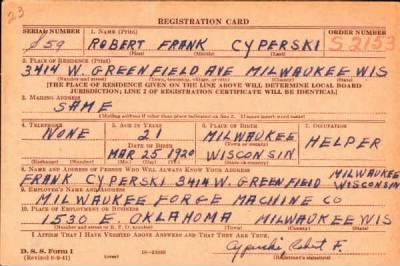 23
REGISTRATION CARD
SERIAL NUMBER 1. NAME (Print) ORDER NUMBER
59 ROBERT FRANK CYPERSKI S 2153
(First) (Middle) (Last)
2. PLACE OF RESIDENCE (Print)
3414 W. GREENFIELD AVE MILWAUKEE WIS
(Number and street) (Town, township, village, or city) (County) (State)
[THE PLACE OF RESIDENCE GIVEN ON THE LINE ABOVE WILL DETERMINE LOCAL BOARD
JURISDICTION; LINE 2 OF REGISTRATION CERTIFICATE WILL BE IDENTICAL]
3. MAILING ADDRESS
SAME
[Mailing address if other than place indicated on line 2. If same insert word same]
4. TELEPHONE 5. AGE IN YEARS 6. PLACE OF BIRTH 7. OCCUPATION
NONE 21 MILWAUKEE HELPER
DATE OF BIRTH
MAR 25 1920 WISCONSIN
(Exchange) (Number) (Mo.) (Day) (Yr.) (State or country)
8. NAME AND ADDRESS OF PERSON WHO WILL ALWAYS KNOW YOUR ADDRESS MILWAUKEE
FRANK CYPERSKI 3414 W. GREENFIELD WISCONSIN
9. EMPLOYER'S NAME AND ADDRESS
MILWAUKEE FORGE MACHINE CO
10. PLACE OF EMPLOYMENT OR BUSINESS
1530 E. OKLAHOMA MILWAUKEE WIS
(Number and street or R. F. D. number) (Town) (County) (State)
I AFFIRM THAT I HAVE VERIFIED ABOVE ANSWERS AND THAT THEY ARE TRUE.
D. S. S. Form 1
(Revised 6-9-41) Cyperski Robert F.